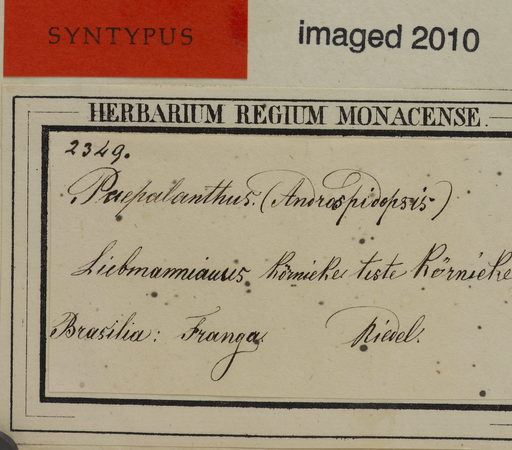 SYNTYPUS
imaged 2010
HERBARIUM REGIUM MONACENSE.
2349.
Paepalanthus. (Androspidopsis)
Liebmannianus Körnicke teste Körnicke
Brasilia: Franga. Riedel.